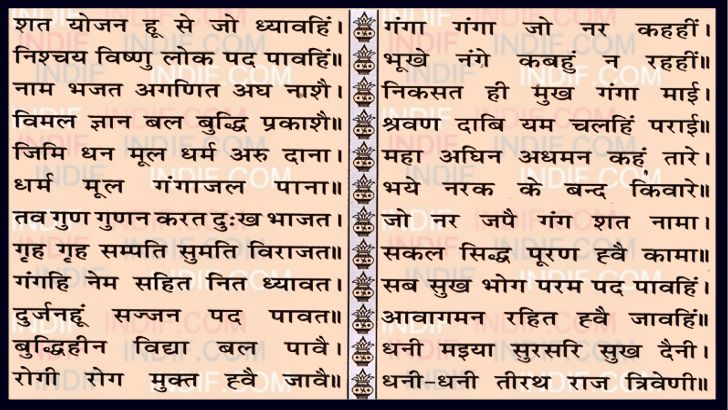 शत योजन हू से जो ध्यावहिं।
निश्चय विष्णु लोक पद पावहिं॥
नाम भजत अगणित अघ नाशै।
विमल ज्ञान बल बुद्धि प्रकाशै॥
जिमि धन मूल धर्म अरु दाना।
धर्म मूल गंगाजल पाना॥
तव गुण गुणन करत दुःख भाजत।
गृह गृह सम्पति सुमति विराजत॥
गंगहि नेम सहित नित ध्यावत।
दुर्जनहूं सज्जन पद पावत॥
बुद्धिहीन विद्या बल पावै।
रोगी रोग मुक्त ह्वै जावै॥
गंगा गंगा जो नर कहहीं।
भूखे नंगे कबहुं न रहहीं॥
निकसत ही मुख गंगा माई।
श्रवण दाबि यम चलहिं पराई॥
महा अघिन अधमन कहं तारे।
भये नरक के बन्द किंवारे॥
जो नर जपै गंग शत नामा।
सकल सिद्ध पूरण ह्वै कामा॥
सब सुख भोग परम पद पावहिं।
आवागमन रहित ह्वै जावहिं॥
धनी मइया सुरसरि सुख दैनी।
धनी-धनी तीरथ राज त्रिवेणी॥
INDIF.COM